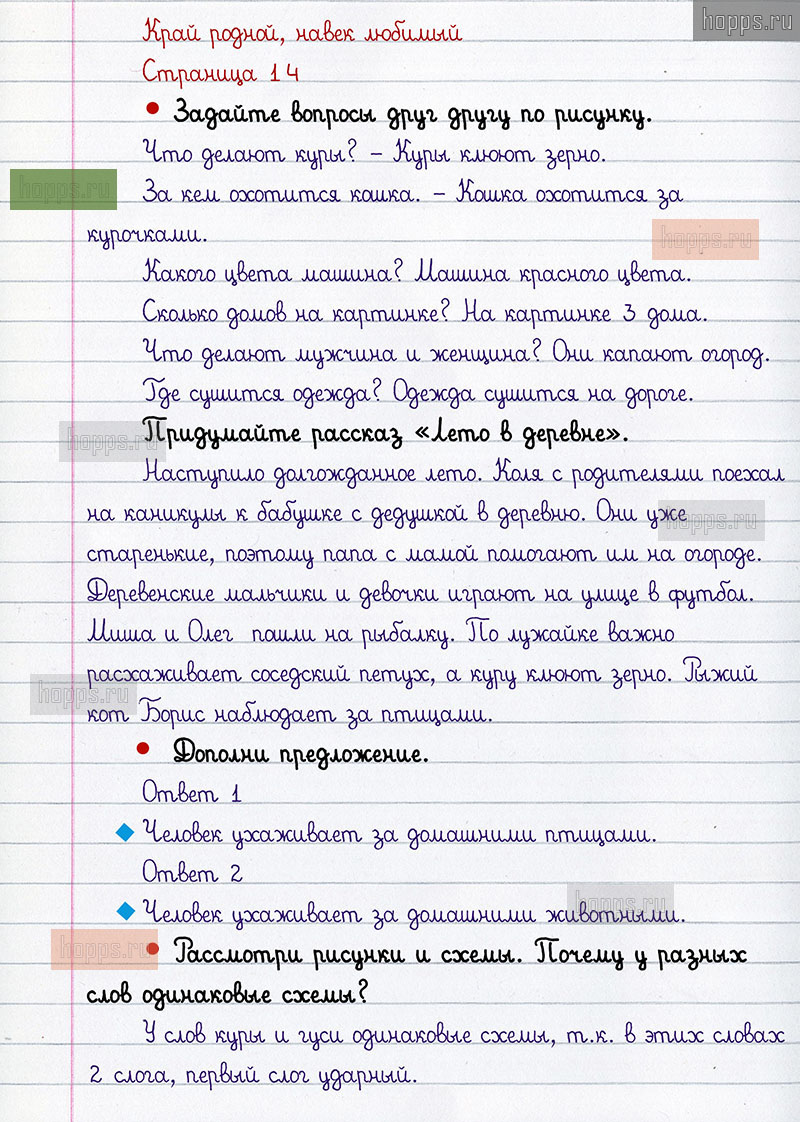 hopps.ru
Край родной, навек любимый
Страница 14
Задайте вопросы друг другу по рисунку.
Что делают куры? – Куры клюют зерно.
hopps.ru
За кем охотится кошка. – Кошка охотится за
hopps.ru
курочками.
Какого цвета машина? Машина красного цвета.
Сколько домов на картинке? На картинке 3 дома.
Что делают мужчина и женщина? Они капают огород.
Где сушится одежда? Одежда сушится на дороге.
hopps.ru
Придумайте рассказ «Лето в деревне».
Наступило долгожданное лето. Коля с родителями поехал
на каникулы к бабушке с дедушкой в деревню. Они уже
hopps.ru
старенькие, поэтому папа с мамой помогают им на огороде.
Деревенские мальчики и девочки играют на улице в футбол.
Миша и Олег пашли на рыбалку. По лужайке важно
расхаживает соседский петух, а куру клюют зерно. Рыжий
hopps.ru
кот Борис наблюдает за птицами.
Дополни предложение.
Ответ 1
Человек ухаживает за домашними птицами.
Ответ 2
hopps.ru
Человек ухаживает за домашними животными.
hopps.ru
Рассмотри рисунки и схемы. Почему у разных
слов одинаковые схемы?
У слов куры и гуси одинаковые схемы, т.к. в этих словах
2 слога, первый слог ударный.